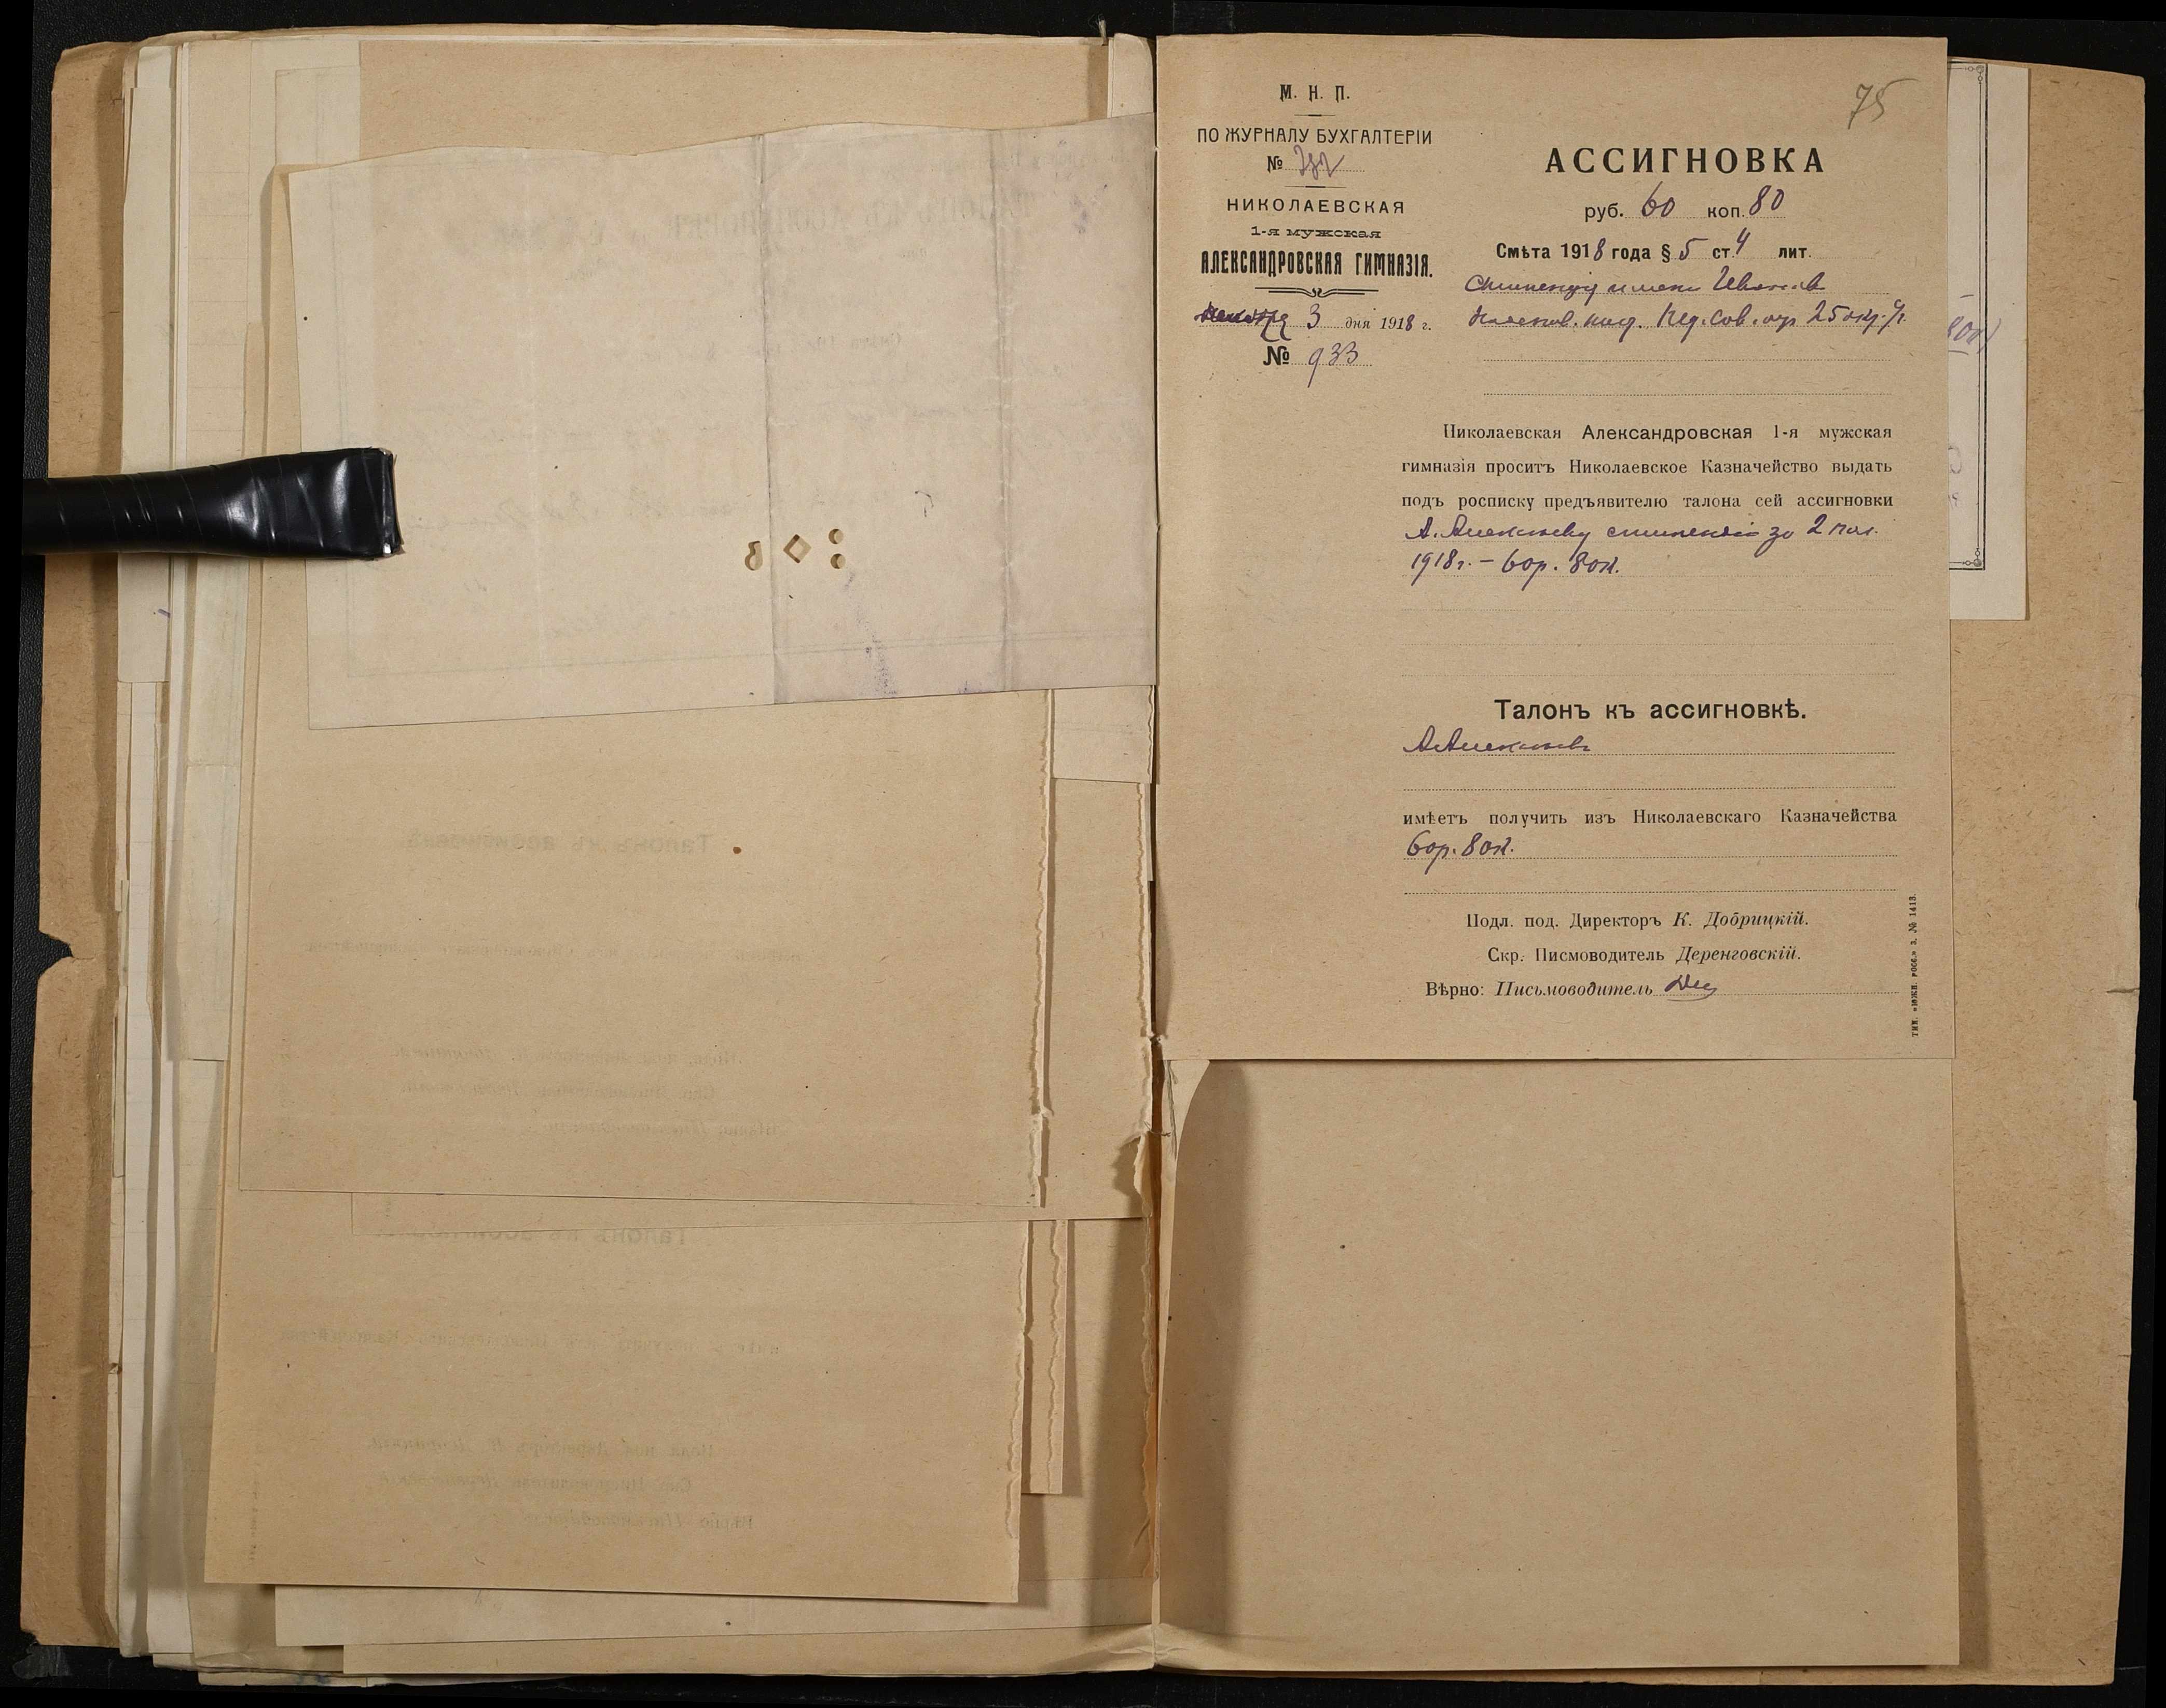 75
М. Н. П.
ПО ЖУРНАЛУ БУХГАЛТЕРІИ
№
НИКОЛАЕВСКАЯ
1-я мужская
АЛЕКСАНДРОВСКАЯ ГИМНАЗІЯ.
3 дня 1918 г.
№ 933
АССИГНОВКА
руб. 60 коп. 80
Смѣта 1918 года § 5 ст. 4 лит.
имени
Пед. Сов. от 25 окт. с/г.
Николаевская Александровская 1-я мужская
гимназія проситъ Николаевское Казначейство выдать
подъ росписку предъявителю талона сей ассигновки
А. Алексееву стипендіи за 2 пол.
1918 г. – 60 р. 80 к.
Талонъ къ ассигновкѣ.
А. Алексеевъ
имѣетъ получить изъ Николаевскаго Казначейства
60 р. 80 к.
Подл. под. Директоръ К. Добрицкій.
Скр. Писмоводитель Деренговскій.
Вѣрно: Письмоводитель
ТИП. «ЮЖН. РОСС.» З. № 1413.